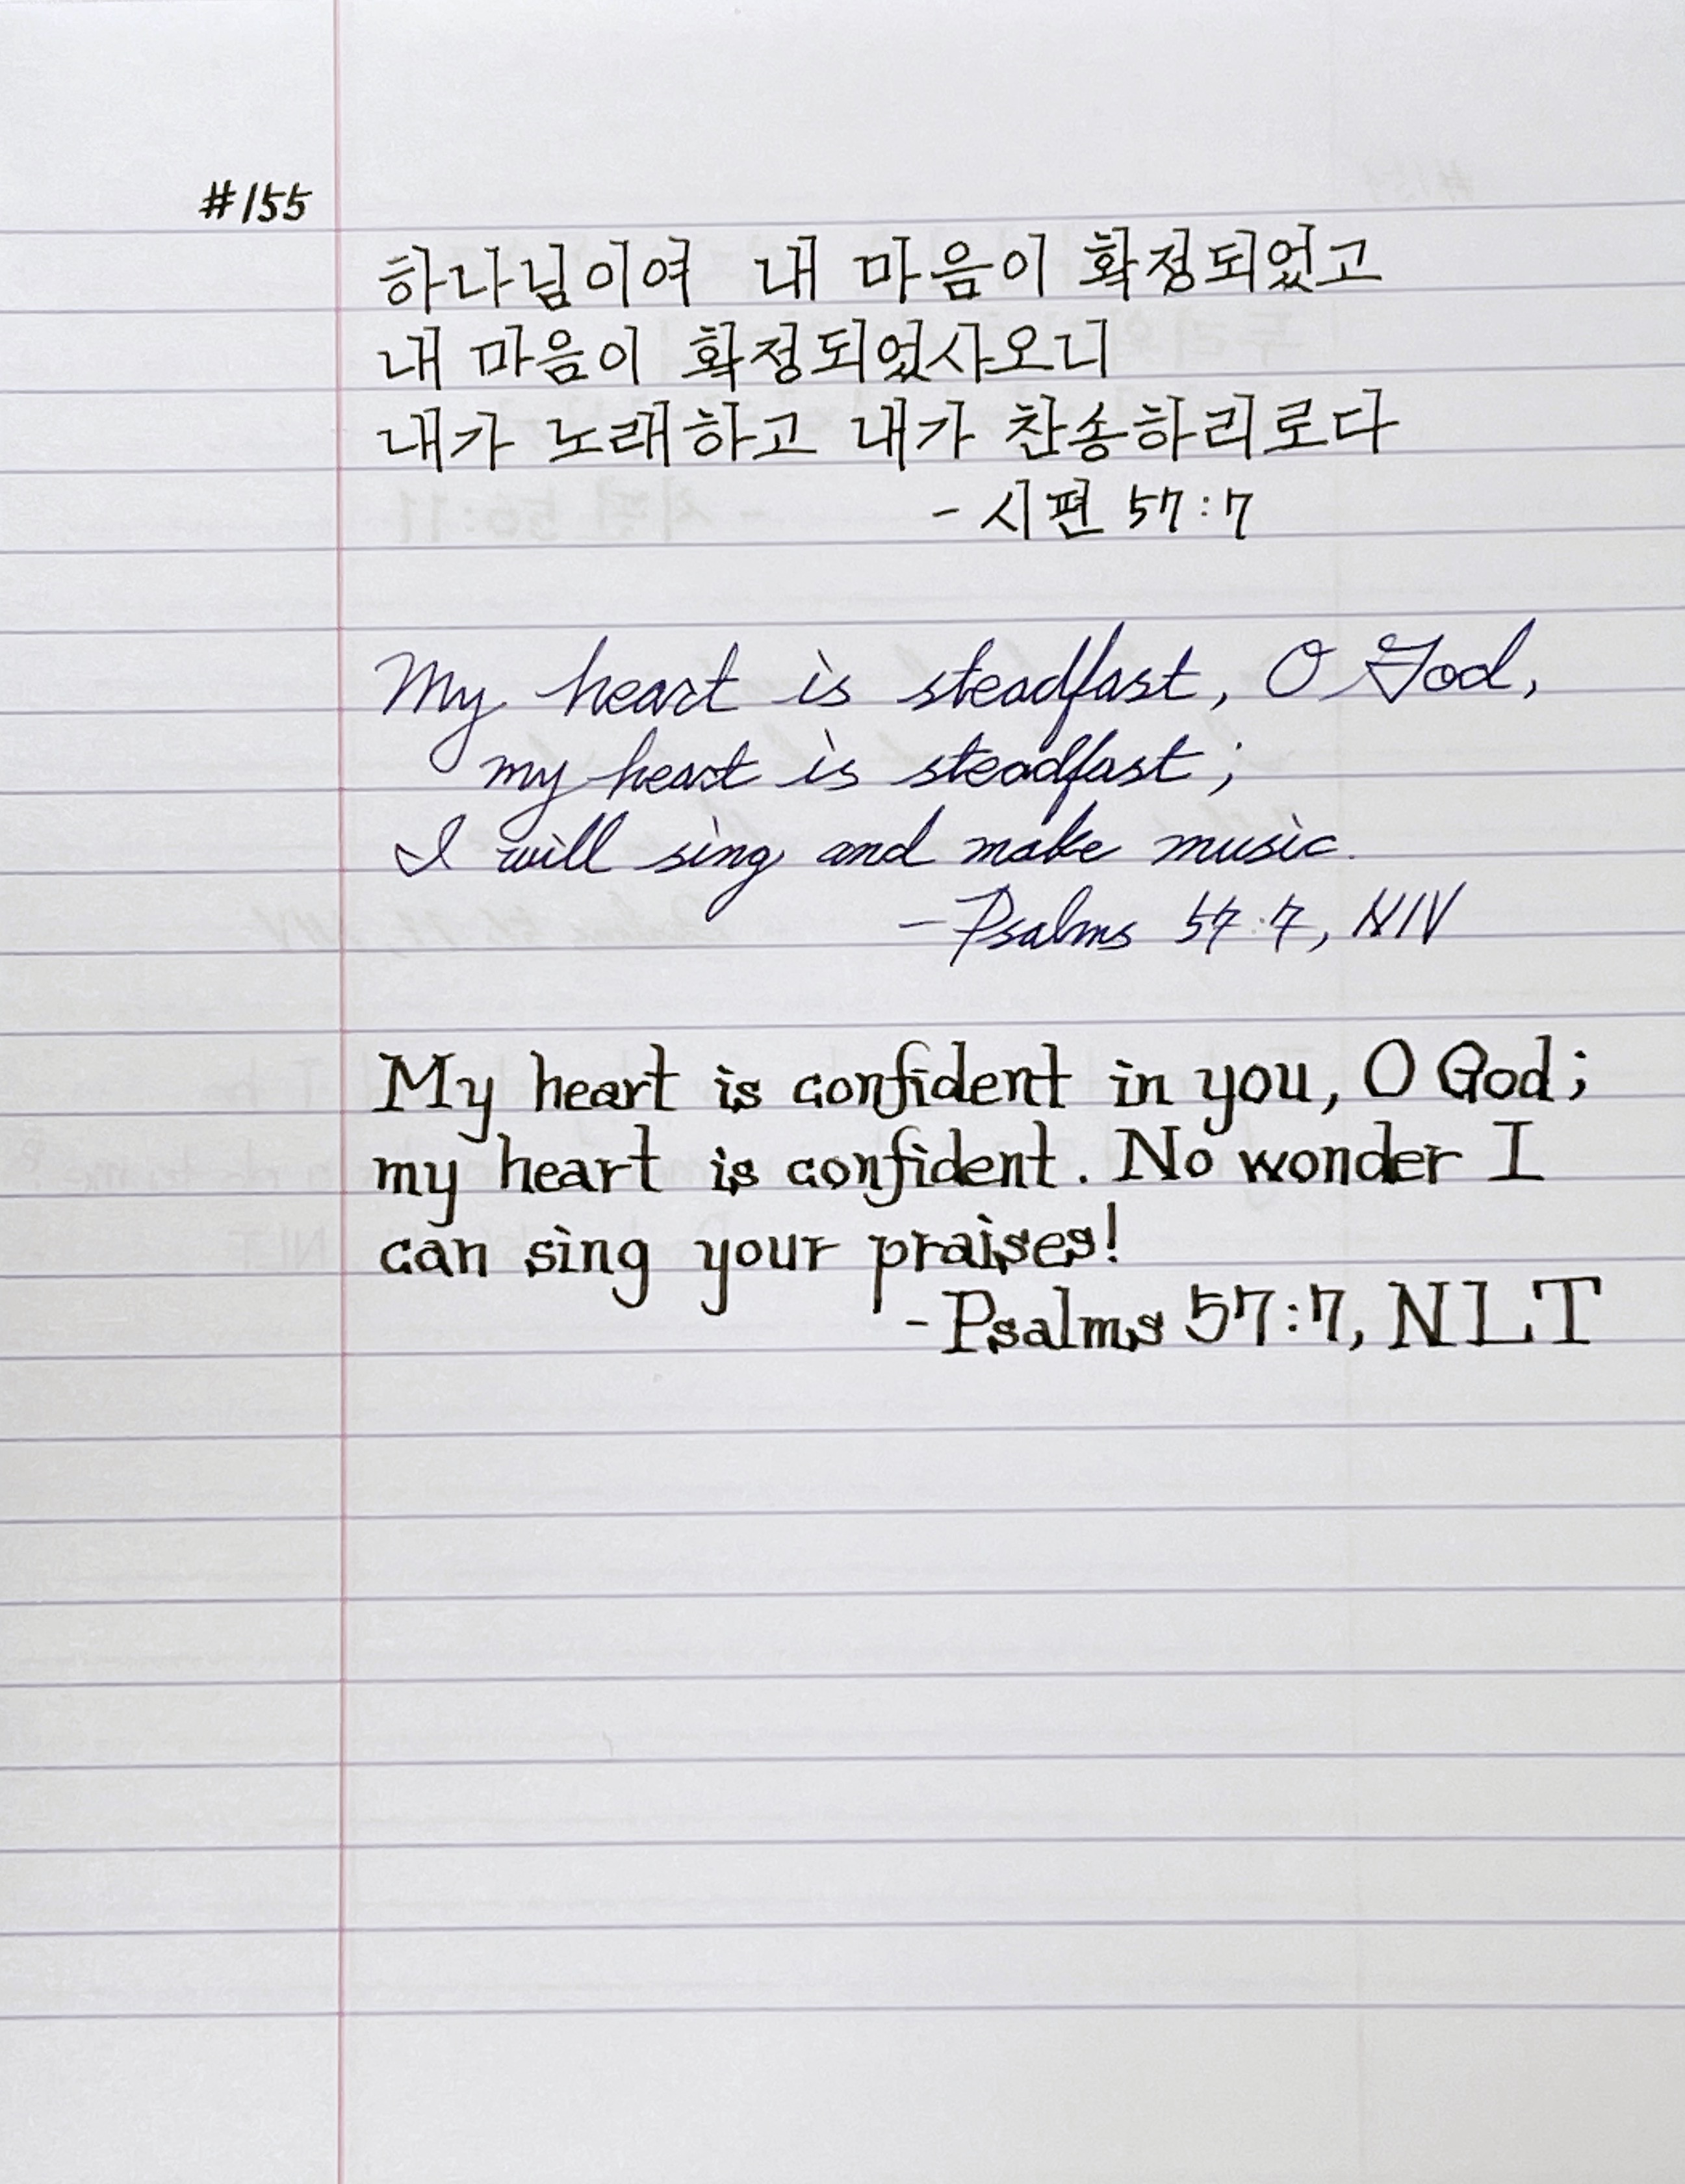 #155
하나님이여 내 마음이 확정되었고
내 마음이 확정되었사오니
내가 노래하고 내가 찬송하리로다
- 시편 57:7
My heart is steadfast, O God,
my heart is steadfast;
I will sing and make music.
- Psalms 57:7, NIV
My heart is confident in you, O God;
my heart is confident. No wonder I
can sing your praises!
- Psalms 57:7, NLT